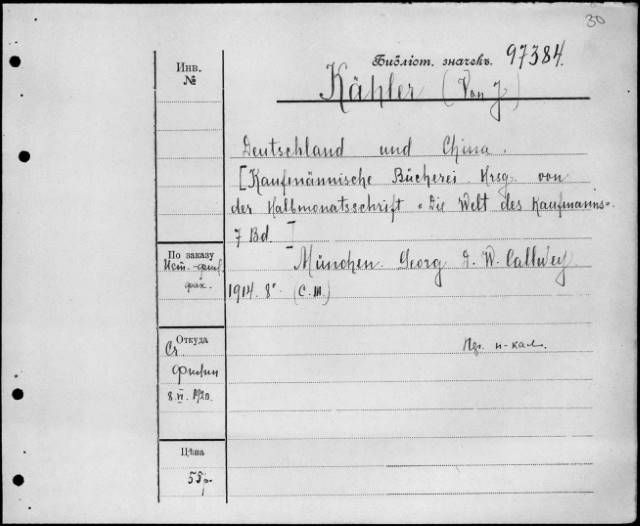 30
Библіот. значекъ. 97384.
Kähler (Von J)
Инв.
№
Deutschland und China.
[Kaufmännische Bücherei. Hrsg. von
der Halbmonatsschrift "Die Welt des Kaufmanns".
7 Bd.]
По заказу
Ист.-фил.
фак.
München. Georg D. W. Callwey
1914. 8° (С. Ш.)
Откуда
Ст.
8. VI. 1920.
п-кал.
Цѣна
55